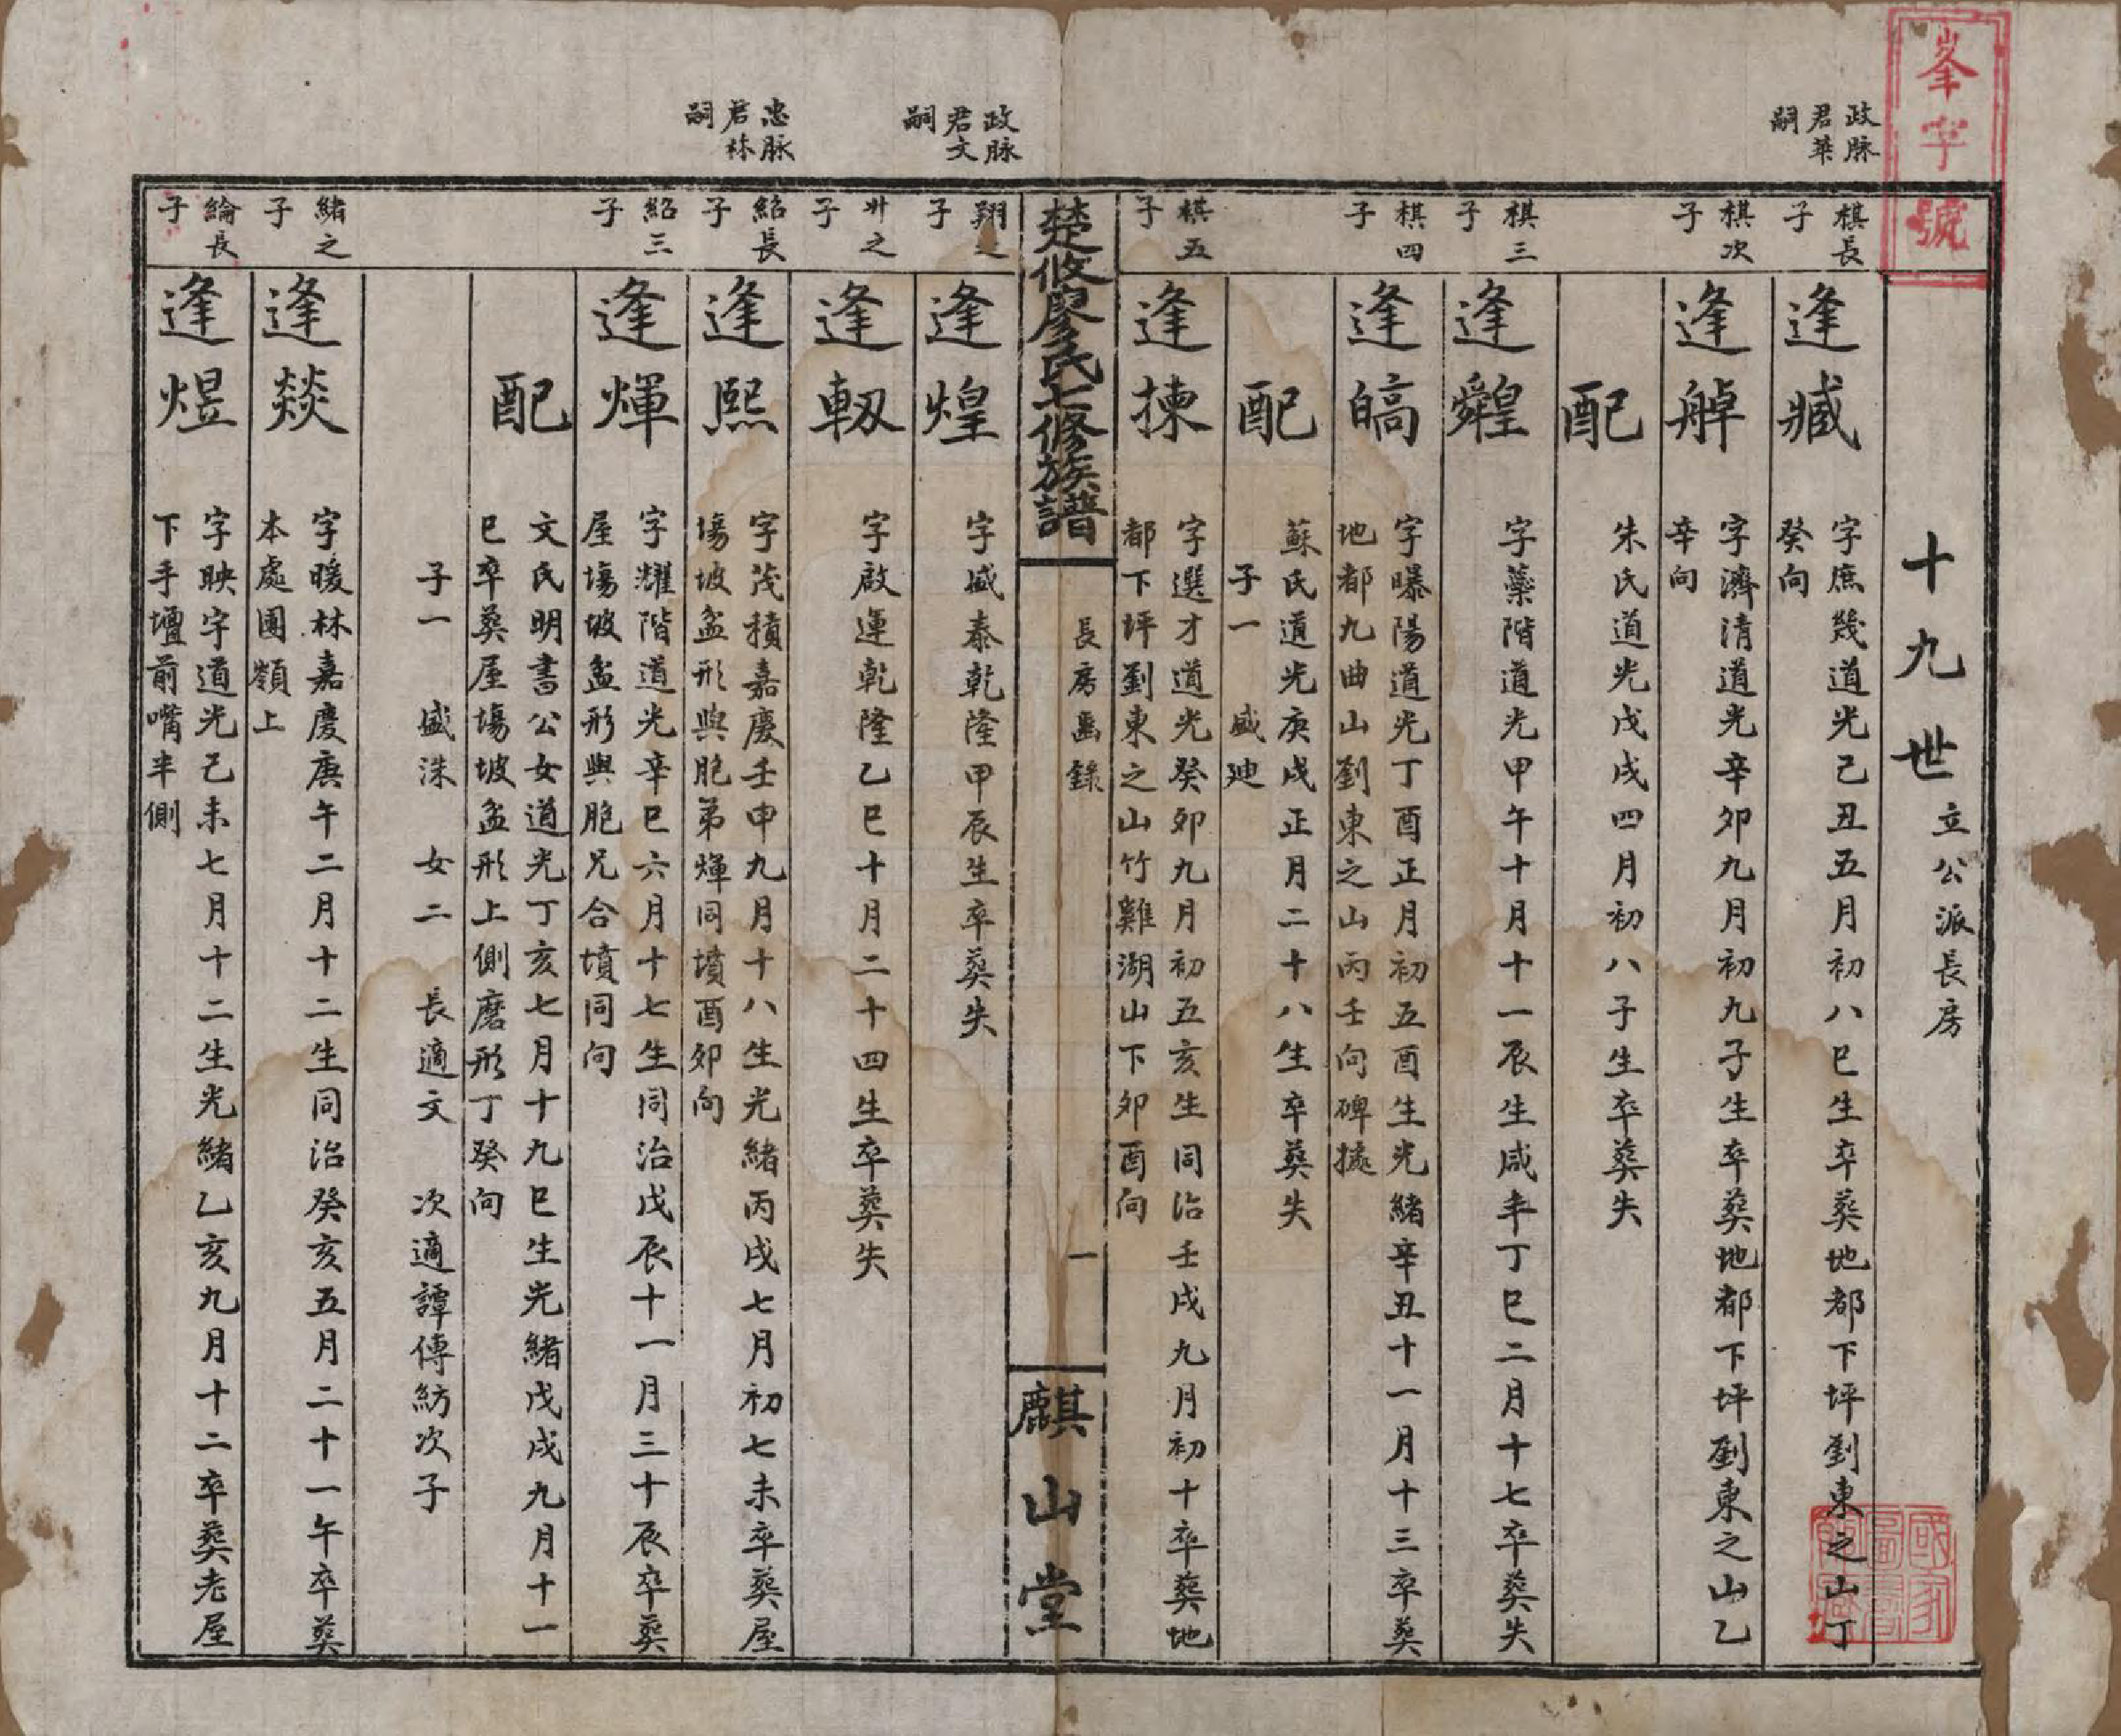 峯字號
十九世 立公派長房
政脉
君華
嗣
棋長
子
逢臧
字庶幾道光己丑五月初八巳生卒葬地都下坪劉東之山丁
癸向
棋次
子
逢皞
字濟清道光辛卯九月初九子生卒葬地都下坪劉東之山乙
辛向
配
朱氏道光戊戌四月初八子生卒葬失
棋三
子
逢
字藥階道光甲午十月十一辰生咸丰丁巳二月十七卒葬失
棋四
子
逢皜
字曝陽道光丁酉正月初五酉生光緒辛丑十一月十三卒葬
地都九曲山劉東之山丙壬向碑據
配
蘇氏道光庚戌正月二十八生卒葬失
子一 盛廸
棋五
子
逢揀
字選才道光癸卯九月初五亥生同治壬戌九月初十卒葬地
都下坪劉東之山竹雞湖山下卯酉向
楚攸廖氏七修族譜
長房齒錄
一
麒山堂
政脉
君文
嗣
翔之
子
逢煌
字盛泰乾隆甲辰生卒葬失
廾之
子
逢軔
字啟運乾隆乙巳十月二十四生卒葬失
忠脉
君林
嗣
紹長
子
逢熙
字茂積嘉慶壬申九月十八生光緒丙戌七月初七未卒葬屋
塲坡盆形與胞弟煇同墳酉卯向
紹三
子
逢煇
字耀階道光辛巳六月十七生同治戊辰十一月三十辰卒葬
屋塲坡盆形與胞兄合墳同向
配
文氏明書公女道光丁亥七月十九巳生光緒戊戌九月十一
巳卒葬屋塲坡盆形上側磨形丁癸向
子一 盛洙 女二 長適文 次適譚傳紡次子
緒之
子
逢燚
字暖林嘉慶庚午二月十二生同治癸亥五月二十一午卒葬
本處團嶺上
綸長
子
逢煜
字映宇道光己未七月十二生光緒乙亥九月十二卒葬老屋
下手壇前嘴半側